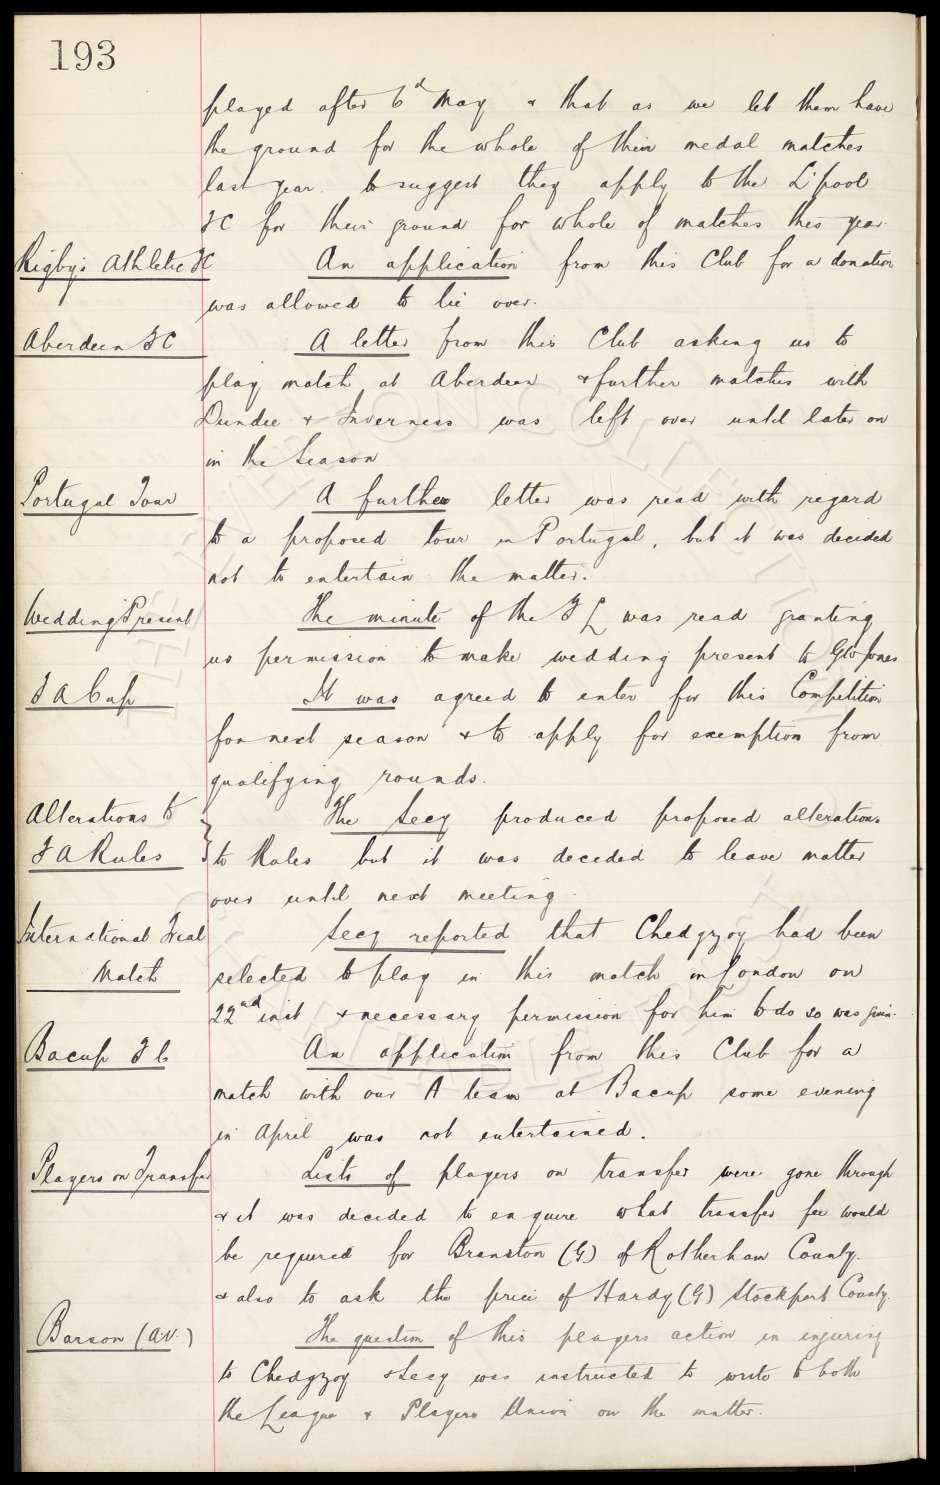 193
played after 6d May & that as we let them have
the ground for the whole of their medal matches
last year. to suggest they apply to the L'pool
FC for their ground for whole of matches this year
Rigby's Athletic FC An application from this Club for a donation
was allowed to lie over.
Aberdeen FC A letter from this Club asking us to
play match at Aberdeen & further matches with
Dundee & Inverness was left over until later on
in the Season
Portugal Tour A further letter was read with regard
to a proposed tour in Portugal, but it was decided
not to entertain the matter.
Wedding Present The minute of the FL was read granting
us permission to make wedding present to Jones
F A Cup It was agreed to enter for this Competition
for next season & to apply for exemption from
qualifying rounds.
Alterations to The Secy produced proposed alterations
F A Rules to Rules but it was decided to leave matter
over until next meeting
International Trial Secy reported that Chedgzoy had been
Match selected to play in this match in London on
22nd inst & necessary permission for him to do so was given.
Bacup F C An application from this Club for a
match with our A team at Bacup some evening
in April was not entertained.
Players on Transfer Lists of players on transfer were gone through
& it was decided to enquire what transfer fee would
be required for Branston (G) of Rotherham County.
& also to ask the price of Hardy (G) Stockport County.
Barson (A.V.) The question of this players action in injuring
to Chedgzoy & Secy was instructed to write to both
the League & Players Union on the matter.
THE EVERTON COLLECTION
CHARITABLE TRUST